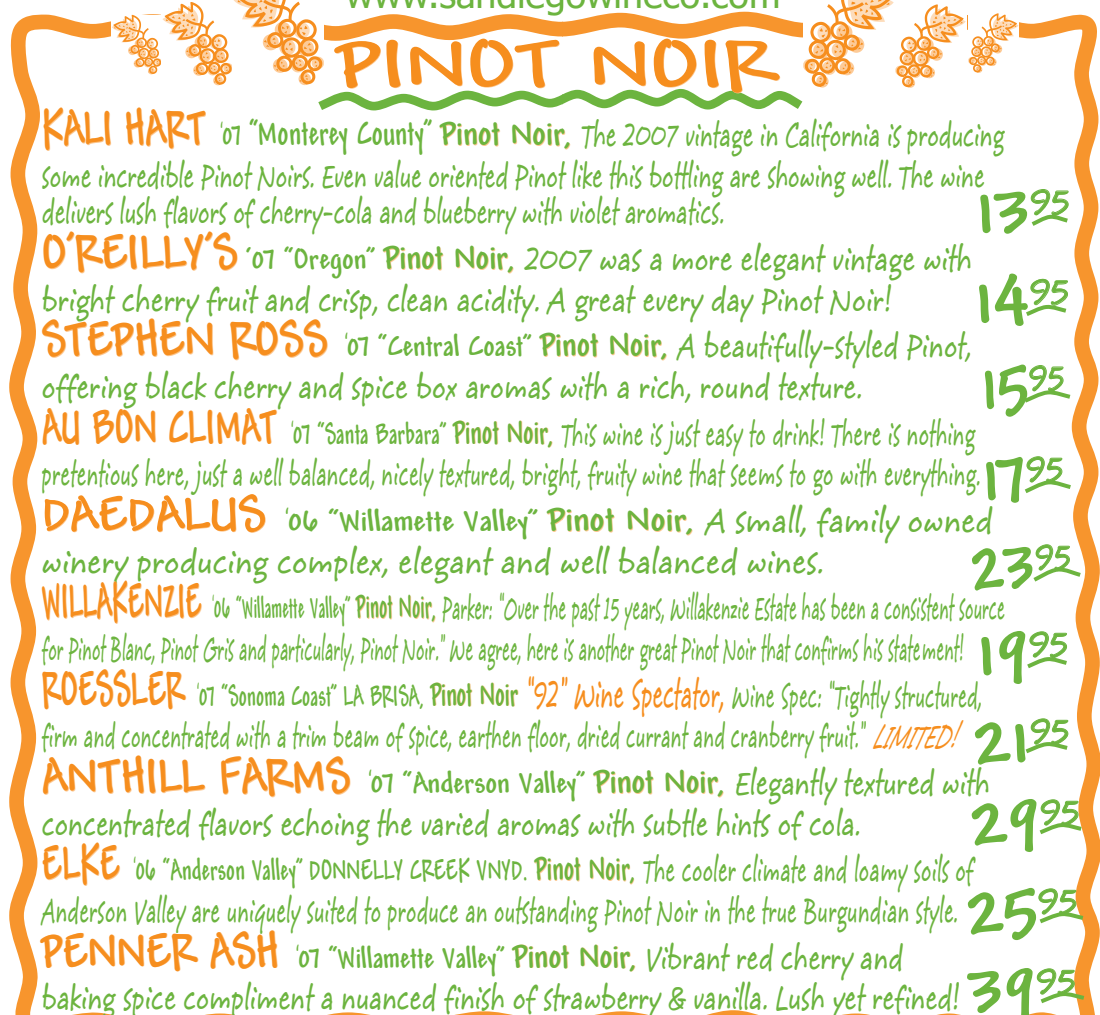 www.sandiegowineco.com
PINOT NOIR
KALI HART '07 "Monterey County" Pinot Noir, The 2007 vintage in California is producing
some incredible Pinot Noirs. Even value oriented Pinot like this bottling are showing well. The wine
delivers lush flavors of cherry-cola and blueberry with violet aromatics. 13.95
O'REILLY'S '07 "Oregon" Pinot Noir, 2007 was a more elegant vintage with
bright cherry fruit and crisp, clean acidity. A great every day Pinot Noir! 14.95
STEPHEN ROSS '07 "Central Coast" Pinot Noir, A beautifully-styled Pinot,
offering black cherry and spice box aromas with a rich, round texture. 15.95
AU BON CLIMAT '07 "Santa Barbara" Pinot Noir, This wine is just easy to drink! There is nothing
pretentious here, just a well balanced, nicely textured, bright, fruity wine that seems to go with everything. 17.95
DAEDALUS '06 "Willamette Valley" Pinot Noir, A small, family owned
winery producing complex, elegant and well balanced wines. 23.95
WILLAKENZIE '06 "Willamette Valley" Pinot Noir, Parker: "Over the past 15 years, Willakenzie Estate has been a consistent source
for Pinot Blanc, Pinot Gris and particularly, Pinot Noir." We agree, here is another great Pinot Noir that confirms his statement! 19.95
ROESSLER '07 "Sonoma Coast" LA BRISA, Pinot Noir "92" Wine Spectator, Wine Spec: "Tightly structured,
firm and concentrated with a trim beam of spice, earthen floor, dried currant and cranberry fruit." LIMITED! 21.95
ANTHILL FARMS '07 "Anderson Valley" Pinot Noir, Elegantly textured with
concentrated flavors echoing the varied aromas with subtle hints of cola. 29.95
ELKE '06 "Anderson Valley" DONNELLY CREEK VNYD. Pinot Noir, The cooler climate and loamy soils of
Anderson Valley are uniquely suited to produce an outstanding Pinot Noir in the true Burgundian style. 25.95
PENNER ASH '07 "Willamette Valley" Pinot Noir, Vibrant red cherry and
baking spice compliment a nuanced finish of strawberry & vanilla. Lush yet refined! 39.95